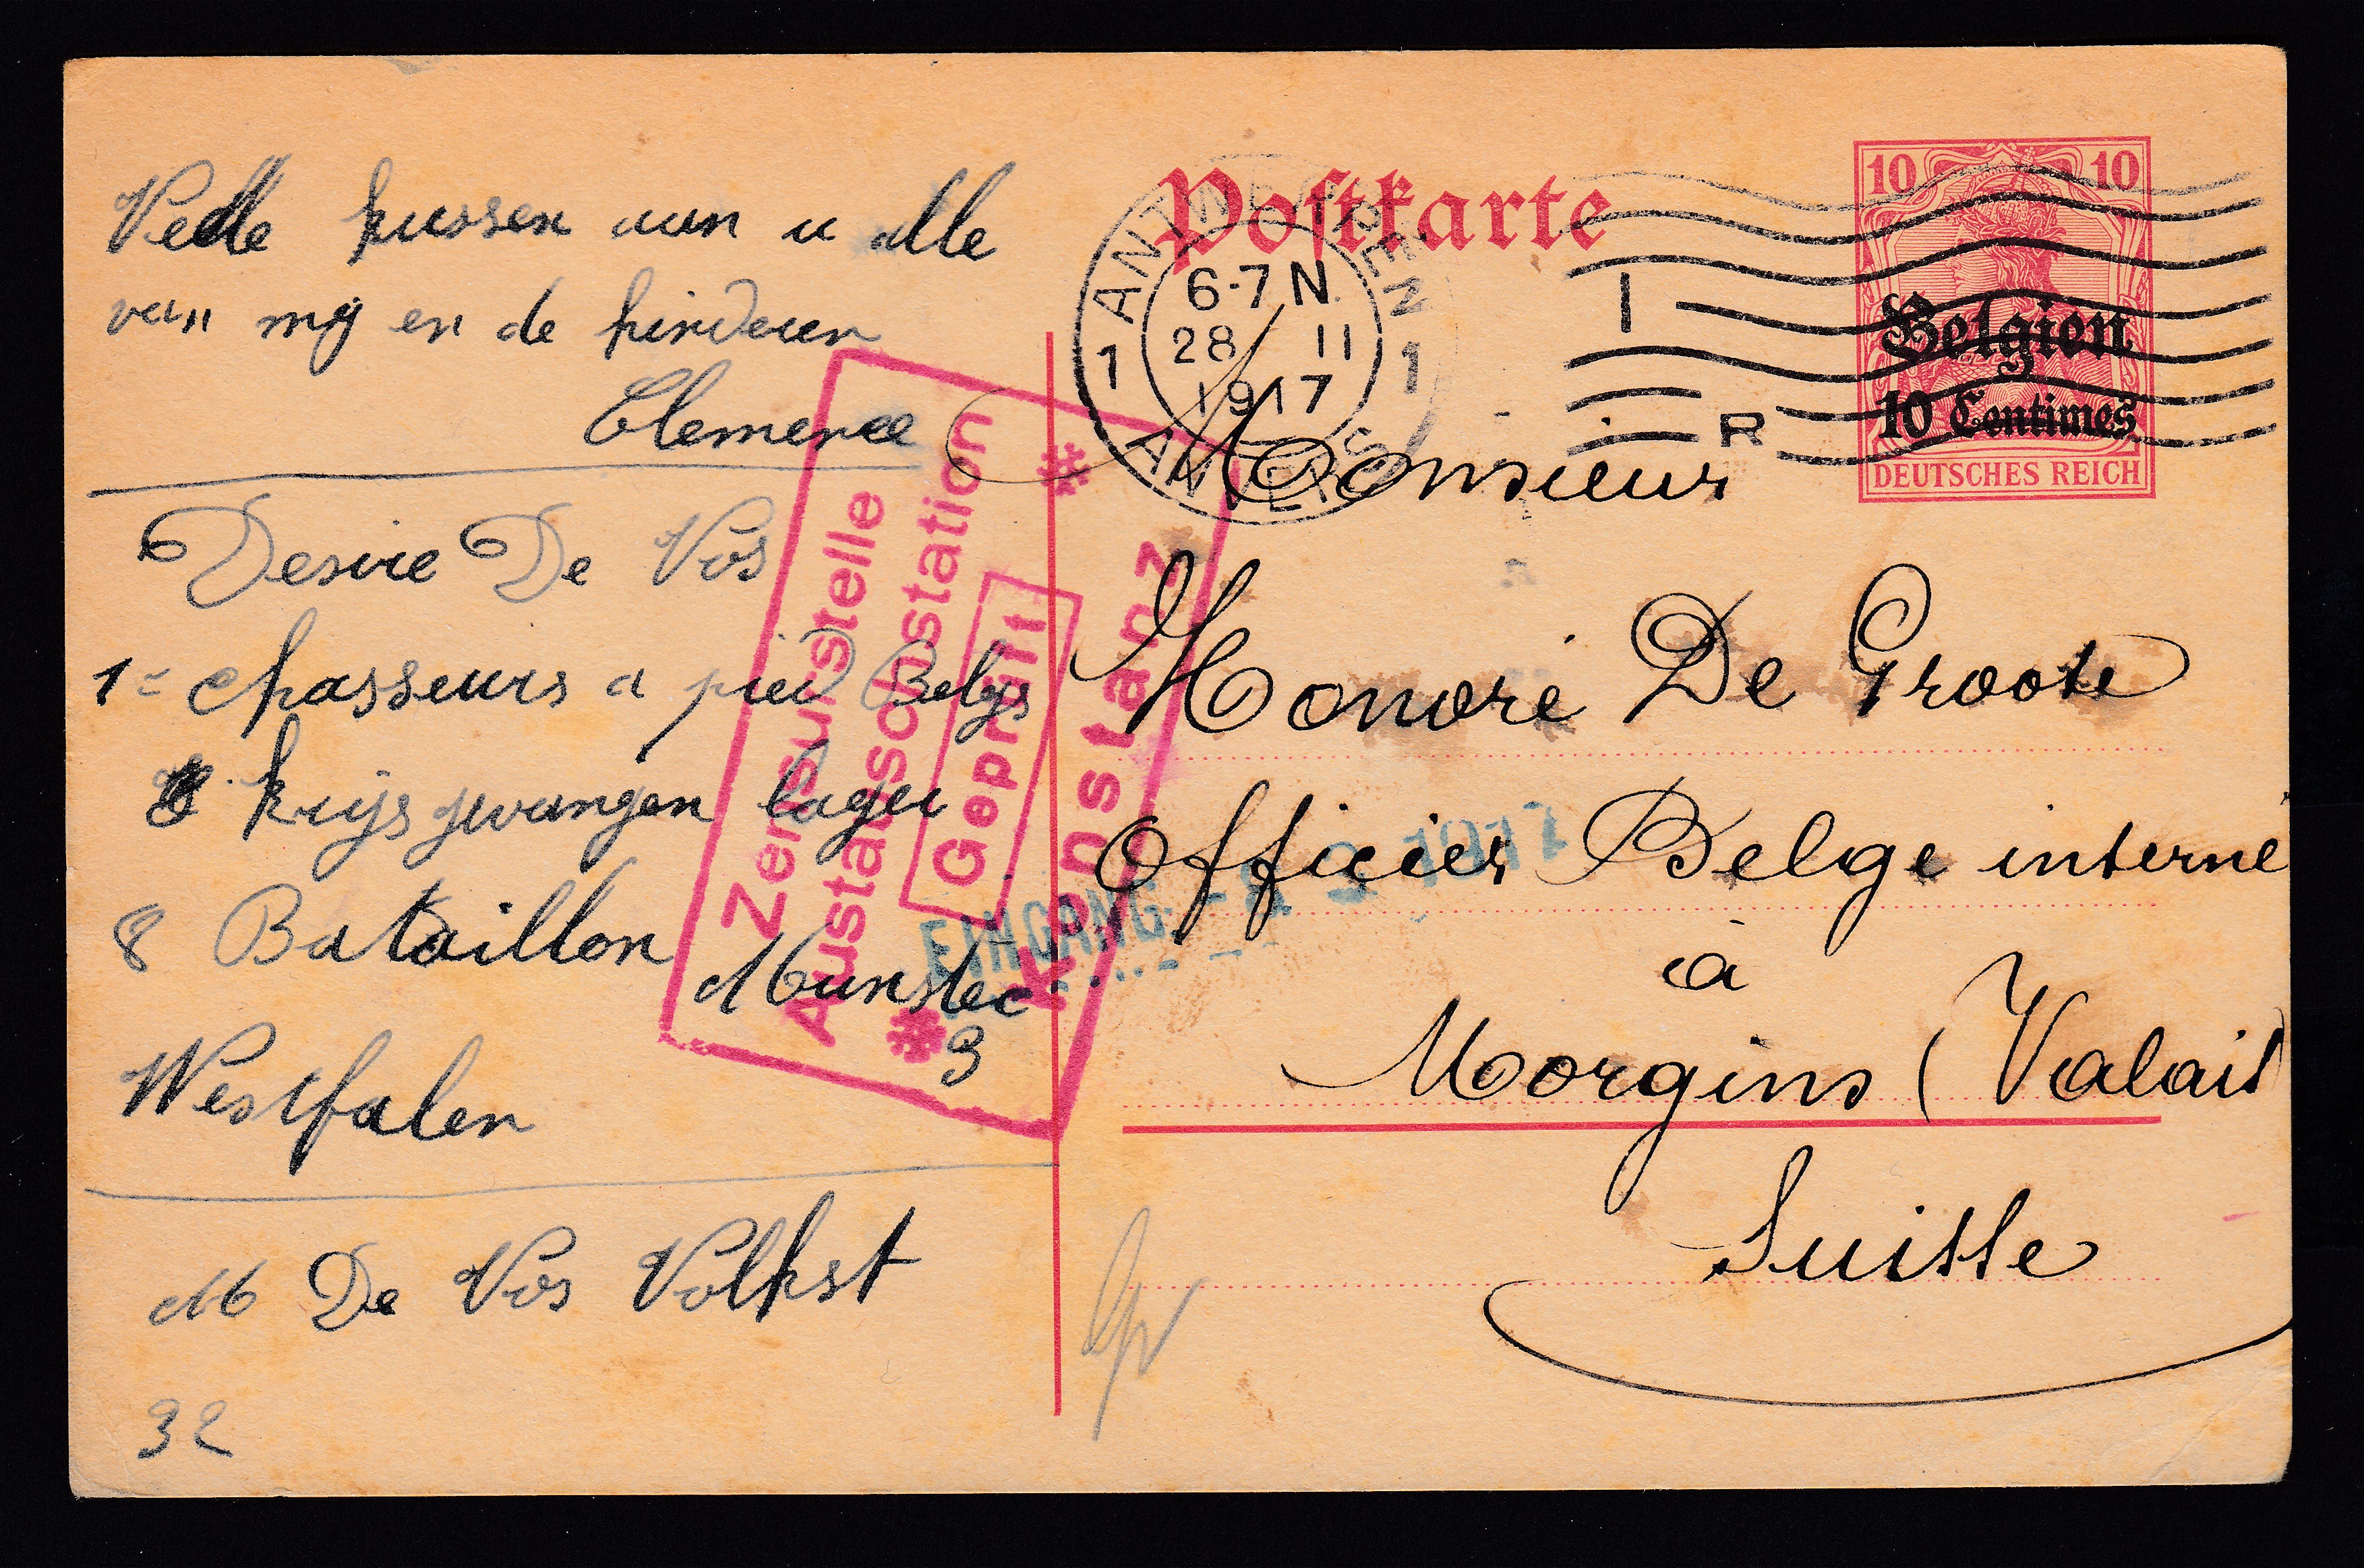 Veele kussen aan u alle
van mij en de kinderen
Clemence
Desire De Vos
1e chasseurs a pied Belgs
krijsgevangen lager
8 Bataillon
Munster
3
Westfalen
M De Vos Volkst
32
Postkarte
ANTWERPEN
1 6-7 N. 1
28 11
1917
ANVERS
I
R
10 10
Belgien
10 Centimes
DEUTSCHES REICH
Zensurstelle
Austauschstation
Geprüft
Konstanz
EINGANG 1917
Monsieur
Honoré De Groote
Officier Belge interné
à
Morgins (Valais
Suisse